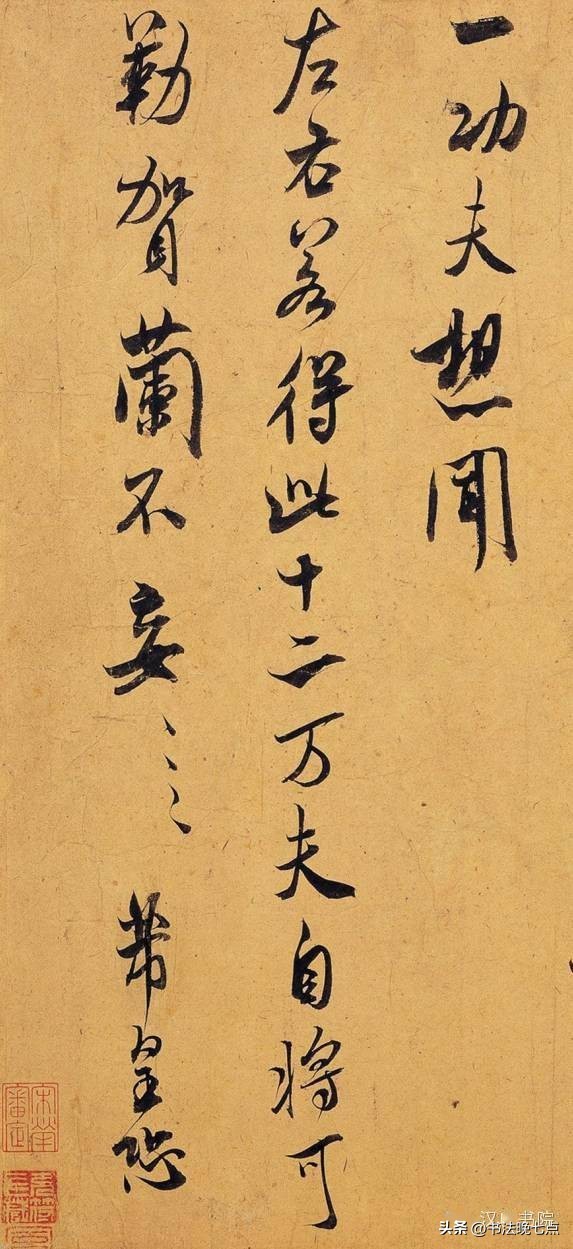 一功夫想聞
左右若得此十二万夫自将可
勒賀蘭不妄〻〻 芾皇恐
宋犖審定
汉 书院
头条 @书法晚七点